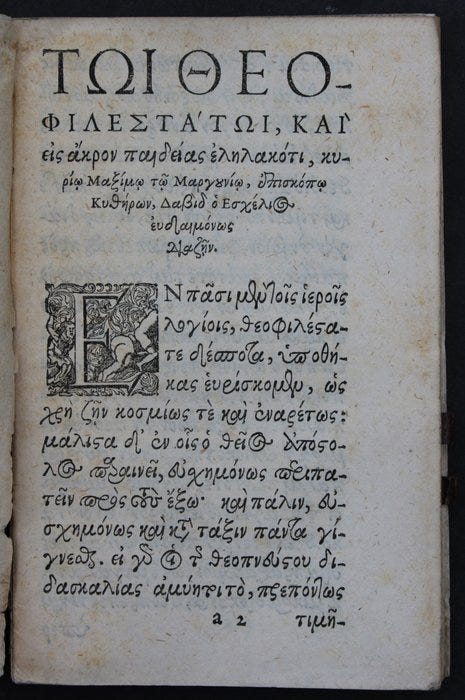 ΤΩΙ ΘΕΟ-
ΦΙΛΕΣΤΑ΄ΤΩΙ, ΚΑΙ`
εἰς ἄκρον παιδείας ἐληλακότι, κυ-
ρίῳ Μαξίμῳ τῷ Μαργουνίῳ, ἐπισκόπῳ
Κυθήρων, Δαβὶδ ὁ Ἐσχέλιος
εὐδαιμόνως
διαζῆν.
ΕΝ πᾶσι μὲν τοῖς ἱεροῖς
λογίοις, θεοφιλέστα-
τε δέσποτα, ὑποθή-
κας εὑρίσκομεν, ὡς
χρὴ ζῆν κοσμίως τὲ καὶ ἐναρέτως:
μάλιστα δ' ἐν οἷς ὁ θεῖος ἀπόστο-
λος παραινεῖ, εὐσχημόνως περιπα-
τεῖν πρὸς τοὺς ἔξω· καὶ πάλιν, εὐ-
σχημόνως καὶ κατὰ τάξιν πάντα γί-
γνεσθαι. εἰ γὰρ τῆς θεοπνεύστου δι-
δασκαλίας ἀμύητοι τὸ πρεπόντως
a 2 τιμῆ-